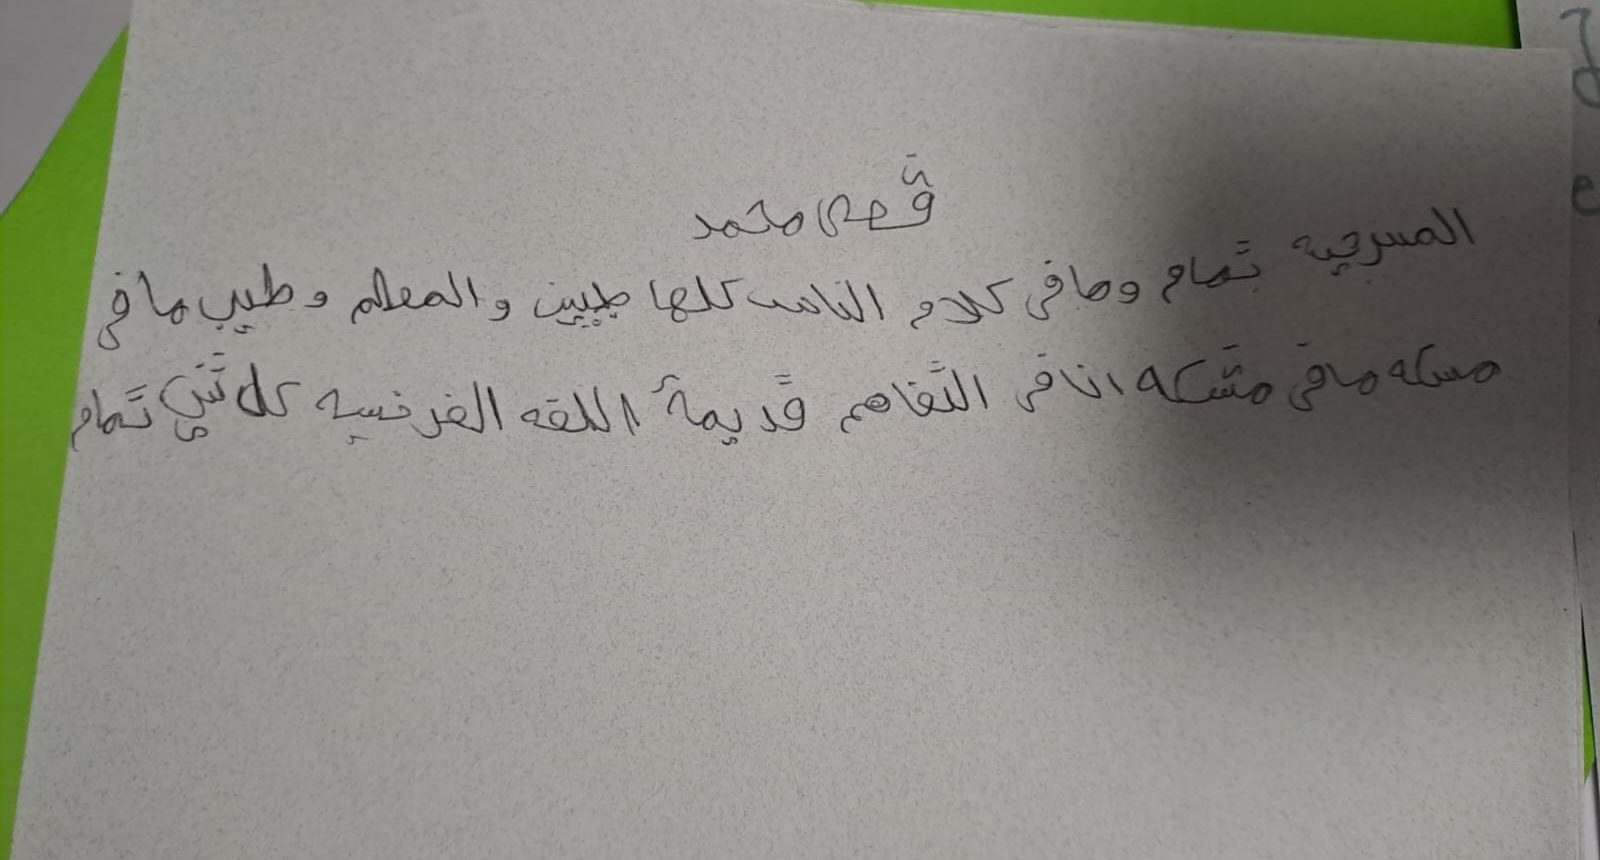 محمد
المسرحيه تمام وما في كلام الناس كلها طيبين والمعلم وطيب ما في
مسكله ما في مشكله انا في التفاهم قديمة اللقه الفرنسيه كل شي تمام